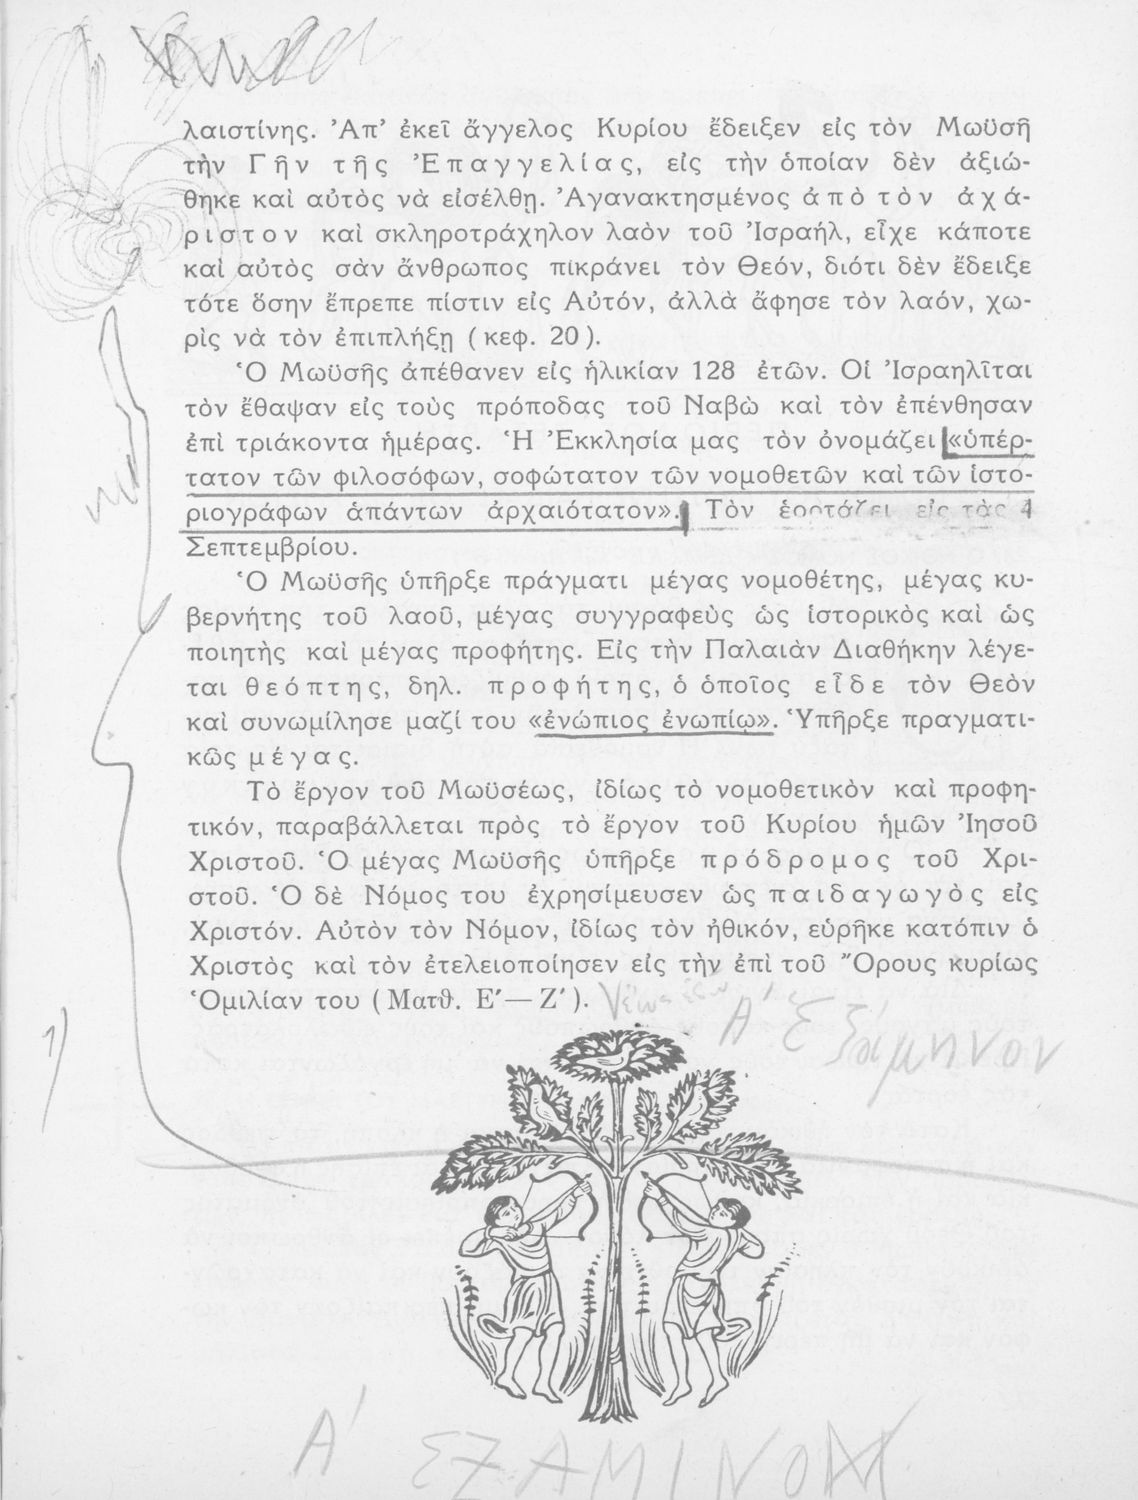 λαιστίνης. Ἀπ’ ἐκεῖ ἄγγελος Κυρίου ἔδειξεν εἰς τὸν Μωϋσῆ
τὴν Γῆν τῆς Ἐπαγγελίας, εἰς τὴν ὁποίαν δὲν ἀξιώ-
θηκε καὶ αὐτὸς νὰ εἰσέλθῃ. Ἀγανακτησμένος ἀπὸ τὸν ἀχά-
ριστον καὶ σκληροτράχηλον λαὸν τοῦ Ἰσραήλ, εἶχε κάποτε
καὶ αὐτὸς σὰν ἄνθρωπος πικράνει τὸν Θεόν, διότι δὲν ἔδειξε
τότε ὅσην ἔπρεπε πίστιν εἰς Αὐτόν, ἀλλὰ ἄφησε τὸν λαόν, χω-
ρὶς νὰ τὸν ἐπιπλήξῃ (κεφ. 20).
Ὁ Μωϋσῆς ἀπέθανεν εἰς ἡλικίαν 128 ἐτῶν. Οἱ Ἰσραηλῖται
τὸν ἔθαψαν εἰς τοὺς πρόποδας τοῦ Ναβὼ καὶ τὸν ἐπένθησαν
ἐπὶ τριάκοντα ἡμέρας. Ἡ Ἐκκλησία μας τὸν ὀνομάζει «ὑπέρ-
τατον τῶν φιλοσόφων, σοφώτατον τῶν νομοθετῶν καὶ τῶν ἱστο-
ριογράφων ἁπάντων ἀρχαιότατον». Τὸν ἑορτάζει εἰς τὰς 4
Σεπτεμβρίου.
Ὁ Μωϋσῆς ὑπῆρξε πράγματι μέγας νομοθέτης, μέγας κυ-
βερνήτης τοῦ λαοῦ, μέγας συγγραφεὺς ὡς ἱστορικὸς καὶ ὡς
ποιητὴς καὶ μέγας προφήτης. Εἰς τὴν Παλαιὰν Διαθήκην λέγε-
ται θεόπτης, δηλ. προφήτης, ὁ ὁποῖος εἶδε τὸν Θεὸν
καὶ συνωμίλησε μαζί του «ἐνώπιος ἐνωπίῳ». Ὑπῆρξε πραγματι-
κῶς μέγας.
Τὸ ἔργον τοῦ Μωϋσέως, ἰδίως τὸ νομοθετικὸν καὶ προφη-
τικόν, παραβάλλεται πρὸς τὸ ἔργον τοῦ Κυρίου ἡμῶν Ἰησοῦ
Χριστοῦ. Ὁ μέγας Μωϋσῆς ὑπῆρξε πρόδρομος τοῦ Χρι-
στοῦ. Ὁ δὲ Νόμος του ἐχρησίμευσεν ὡς παιδαγωγὸς εἰς
Χριστόν. Αὐτὸν τὸν Νόμον, ἰδίως τὸν ἠθικόν, εὑρῆκε κατόπιν ὁ
Χριστὸς καὶ τὸν ἐτελειοποίησεν εἰς τὴν ἐπὶ τοῦ Ὄρους κυρίως
Ὁμιλίαν του (Ματθ. Ε′—Ζ′).
Α' Ἑξάμηνον
Α' ΕΞΑΜΙΝΟΝ